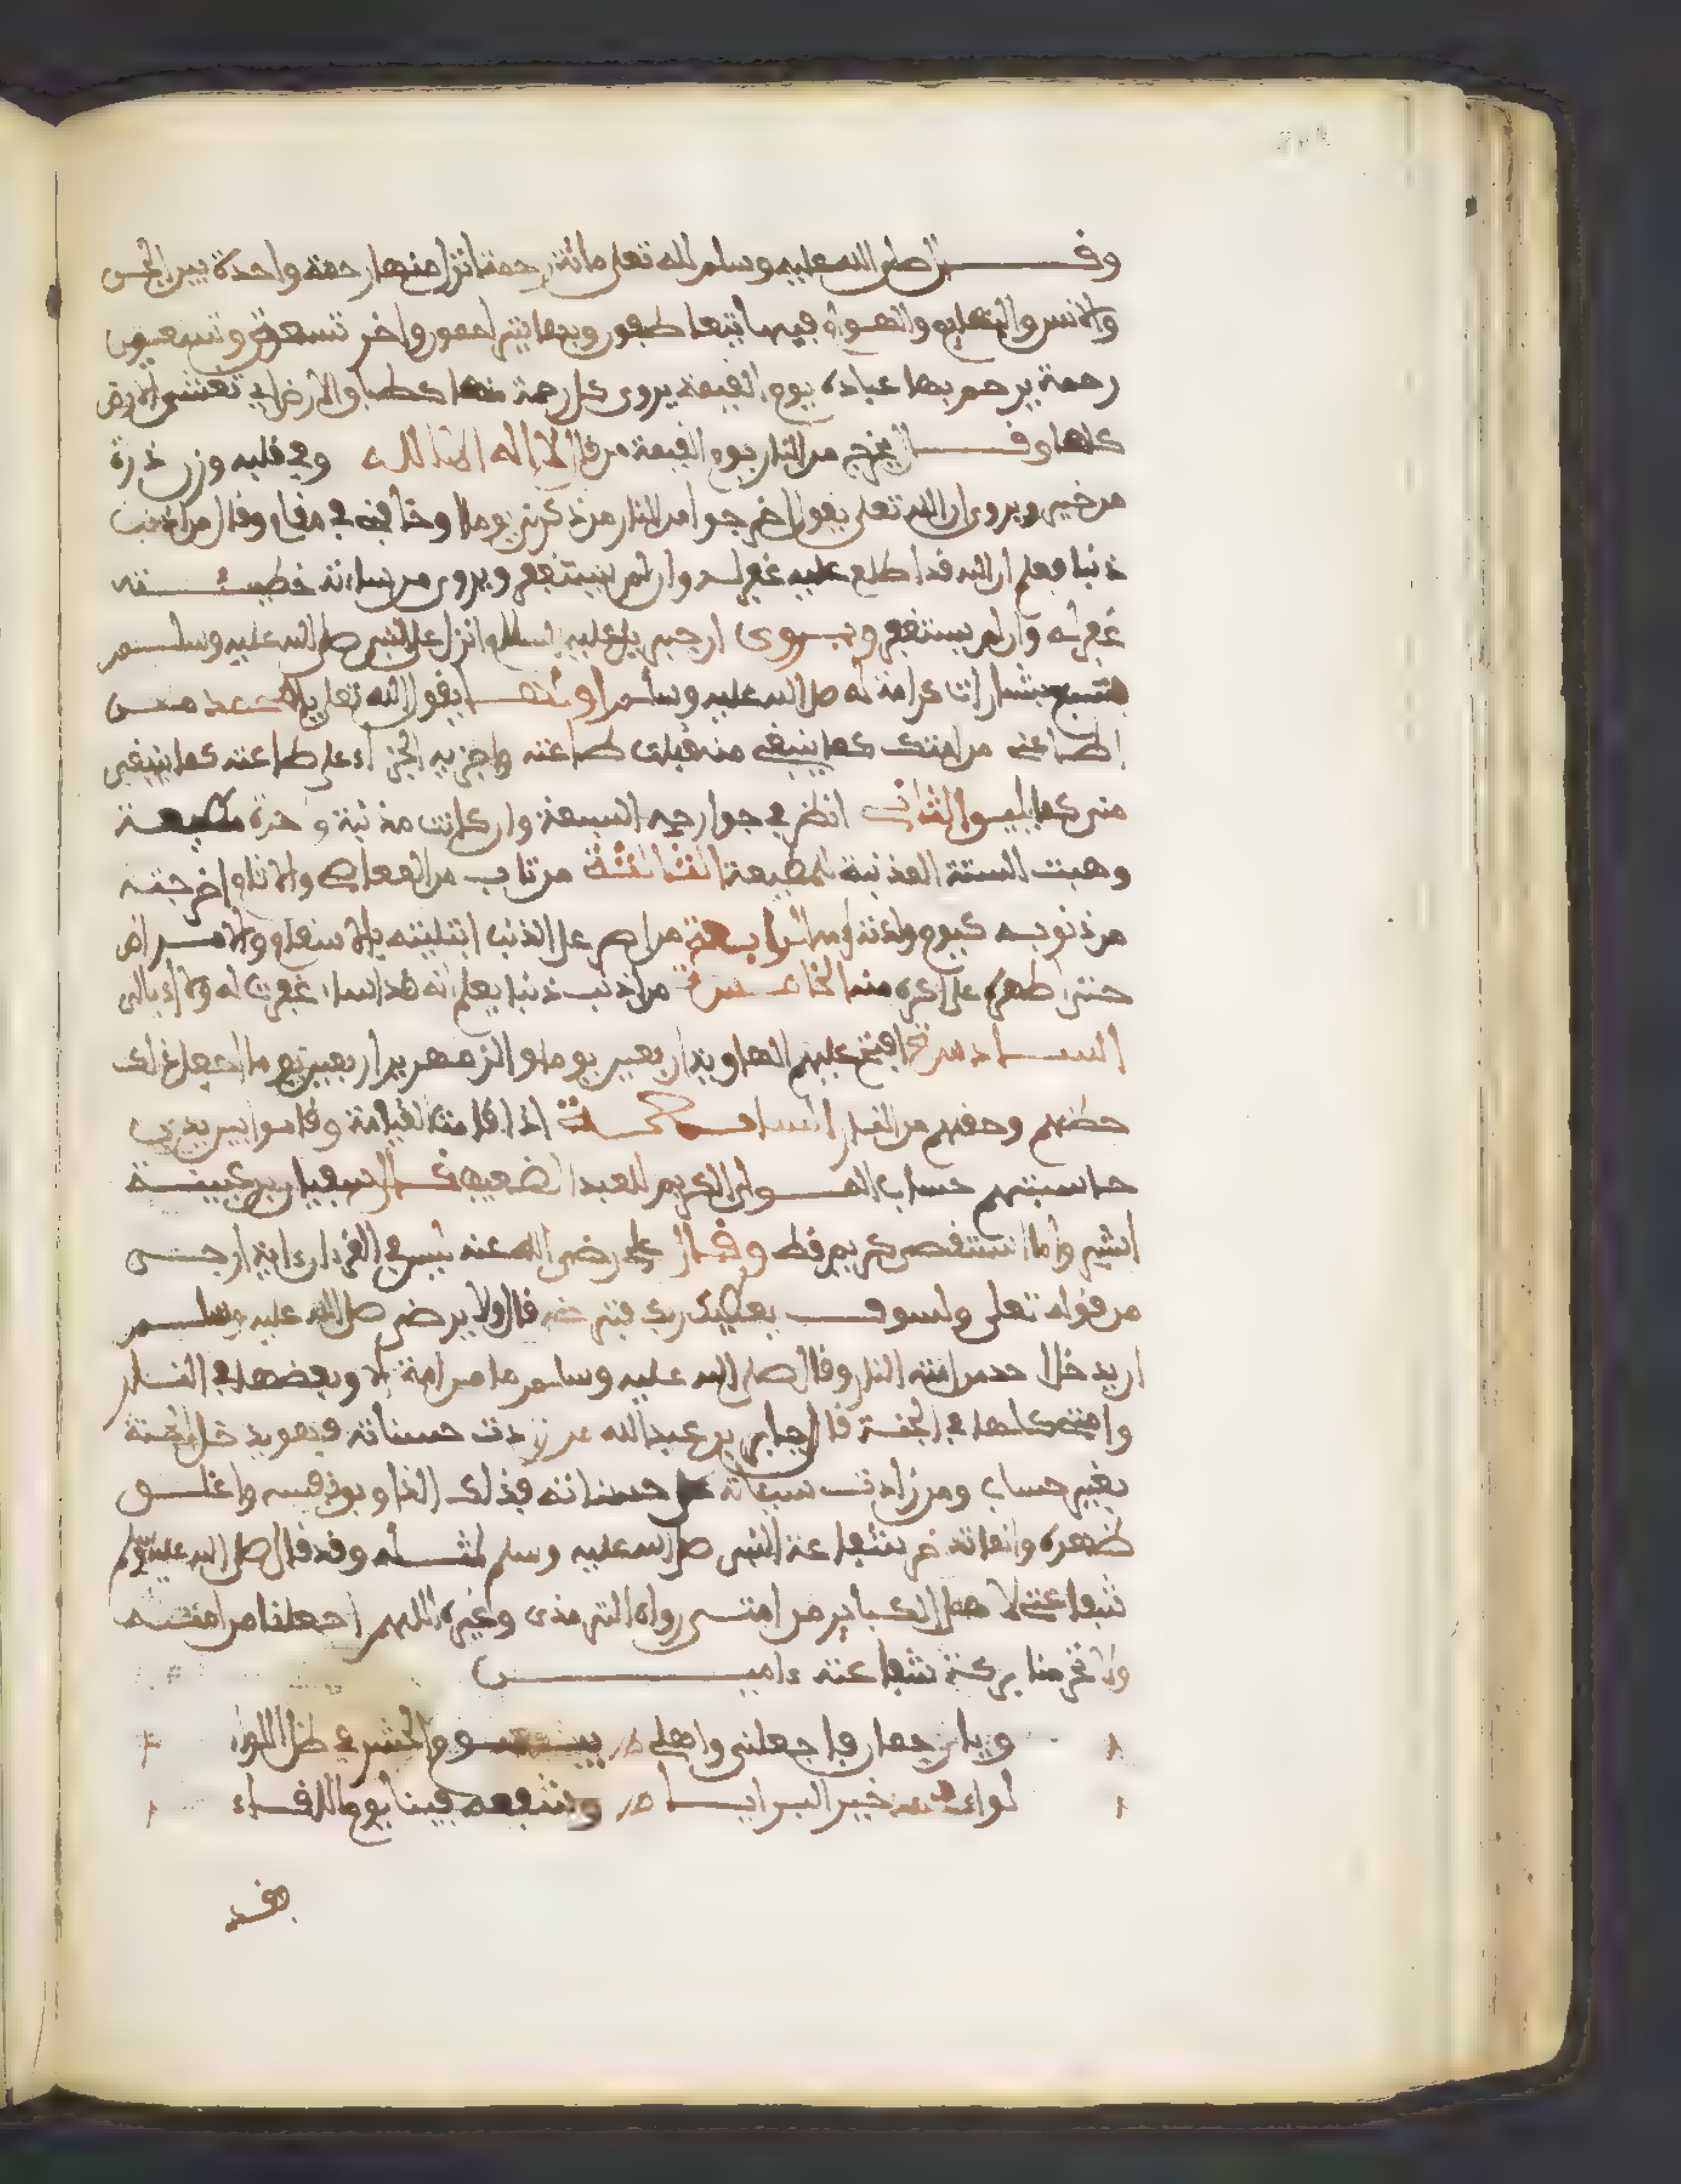 وقال صلى الله عليه وسلم لله تعلى مائة رحمة انزل منها رحمة واحدة بين الجن
والانس والبهايم والهوام فبها يتعاطفون وبها يتراحمون واخر تسعة وتسعين
رحمة يرحم بها عباده يوم القيمة يروى كل رحمة منها كطباق الارض اي تغشى الارض
كلها وقال يخرج من النار يوم القيمة من قال لا اله الا الله وفي قلبه وزن ذرة
من خير ويروى ان الله تعلى يقول اخرجوا من النار من ذكرني يوما او خافني في مقام وقال من اذنب
ذنبا فعلم ان الله قد اطلع عليه غفر له وان لم يستغفر ويروى من ساءته خطيئته
غفر له وان لم يستغفر ويروى ان جبريل عليه السلام انزل على النبي صلى الله عليه وسلم
بسبع بشارات كرامة له صلى الله عليه وسلم اولها يقول الله تعلى يا محمد من
اطاعني من امتك كما ينبغي منه قبلت طاعته واجزيه الجزاء على طاعته كما ينبغي
مني كما يليق الثاني انظر في جوارحه السبعة وان كانت مذنبة وحدة مطيعة
وهبت الستة المذنبة للمطيعة الثالثة من تاب من المعاصي والاثام اخرجته
من ذنوبه كيوم ولدته امه الرابعة من اصر على الذنب ابتليته بالاسقام والامراض
حتى اطهره على كره منه الخامسة من اذنب ذنبا يعلم انه قد اساء غفرت له ولا ابالي
السادسة افتح عليهم الهاوية اربعين يوما والزمهرير اربعين يوما اجعل ذلك
حظهم وحقهم من النار السابعة اذا قامت القيامة وقاموا بين يدي
حاسبتهم حساب المولى الكريم للعبد الضعيف قال سفيان بن عيينة
ابشروا ما استقصى كريم قط وقال علي رضي الله عنه ليس في القرءان ءاية ارجى
من قوله تعلى ولسوف يعطيك ربك فترضى قال ولا يرضى صلى الله عليه وسلم
ان يدخل احد من امته النار وقال صلى الله عليه وسلم ما من امة الا وبعضها في النار
وامتي كلها في الجنة قال جابر بن عبد الله من زادت حسناته فهو يدخل الجنة
بغير حساب ومن زادت سيئاته على حسناته فذلك الذي اوبق نفسه واغلق
ظهره وانما تدخر شفاعة النبي صلى الله عليه وسلم لمثله وقد قال صلى الله عليه وسلم
شفاعتي لاهل الكبائر من امتي رواه الترمذي وغيره اللهم اجعلنا من امته
ولا تحرمنا بركة شفاعته ءامين
ويا رحمان فاجعلني واهلي بيوم الحشر في ظل اللواء
لواء محمد خير البرايا وشفعه فينا يوم اللقاء